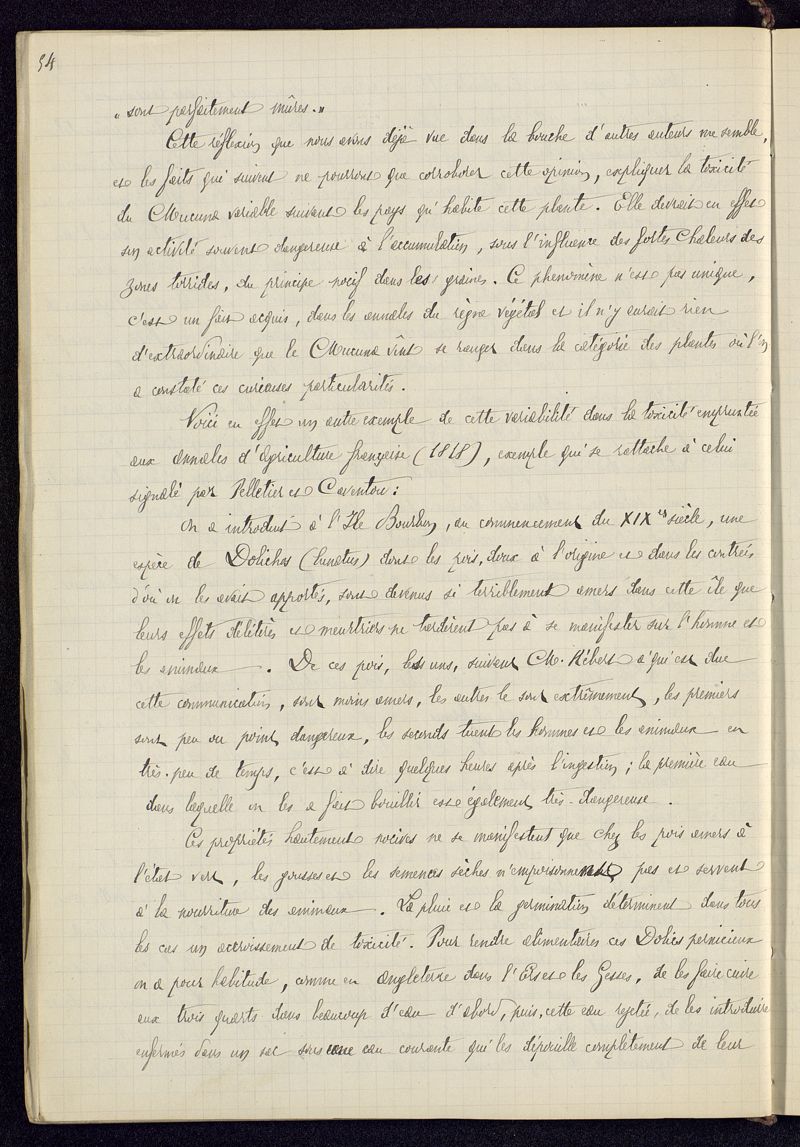 54
„ sont parfaitement mûres. "
Cette réflexion que nous avons déjà vue dans la bouche d'autres auteurs me semble,
et les faits qui suivent ne pourront que corroborer cette opinion, expliquer la toxicité
du Mucuna variable suivant les pays qu'habite cette plante. Elle devrait en effet
son activité souvent dangereuse à l'accumulation, sous l'influence des fortes Chaleurs des
zones torrides, du principe nocif dans les graines. Ce phenomène n'est pas unique,
c'est un fait acquis, dans les annales du règne végétal et il n'y aurait rien
d'extraordinaire que le Mucuna vînt se ranger dans la catégorie des plantes où l'on
a constaté ces curieuses particularités.
Voici en effet un autre exemple de cette variabilité dans la toxicité empruntée
aux annales d'agriculture française (1818), exemple qui se rattache à celui
signalé par Pelletier et Caventou :
On a introduit à l'Ile Bourbon, au commencement du XIXes siècle, une
espèce de Dolichos (lunatus) dont les pois, doux à l'origine et dans les contrées
d'où on les avait apportés, sont devenus si terriblement amers dans cette île que
leurs effets délétères et meurtriers ne tardèrent pas à se manifester sur l'homme et
les animaux. De ces pois, les uns, suivant M. Hébert à qui est due
cette communication, sont moins amers, les autres le sont extrêmement, les premiers
sont peu ou point dangereux, les seconds tuent les hommes et les animaux en
très-peu de temps, c'est à dire quelques heures après l'ingestion ; la première eau
dans laquelle on les a fait bouillir est également très-dangereuse.
Ces propriétés hautement nocives ne se manifestent que chez les pois amers à
l'état vert, les gousses et les semences sèches n'empoisonnent pas et servent
à la nourriture des animaux. La pluie et la germination déterminent dans tous
les cas un accroissement de toxicité. Pour rendre alimentaires ces Dolics pernicieux
on a pour habitude, comme en Angleterre dans l'Ers et les Gesses, de les faire cuire
aux trois quarts dans beaucoup d'eau d'abord, puis, cette eau rejetée, de les introduire
enfermés dans un sac sous une eau courante qui les dépouille complètement de leur